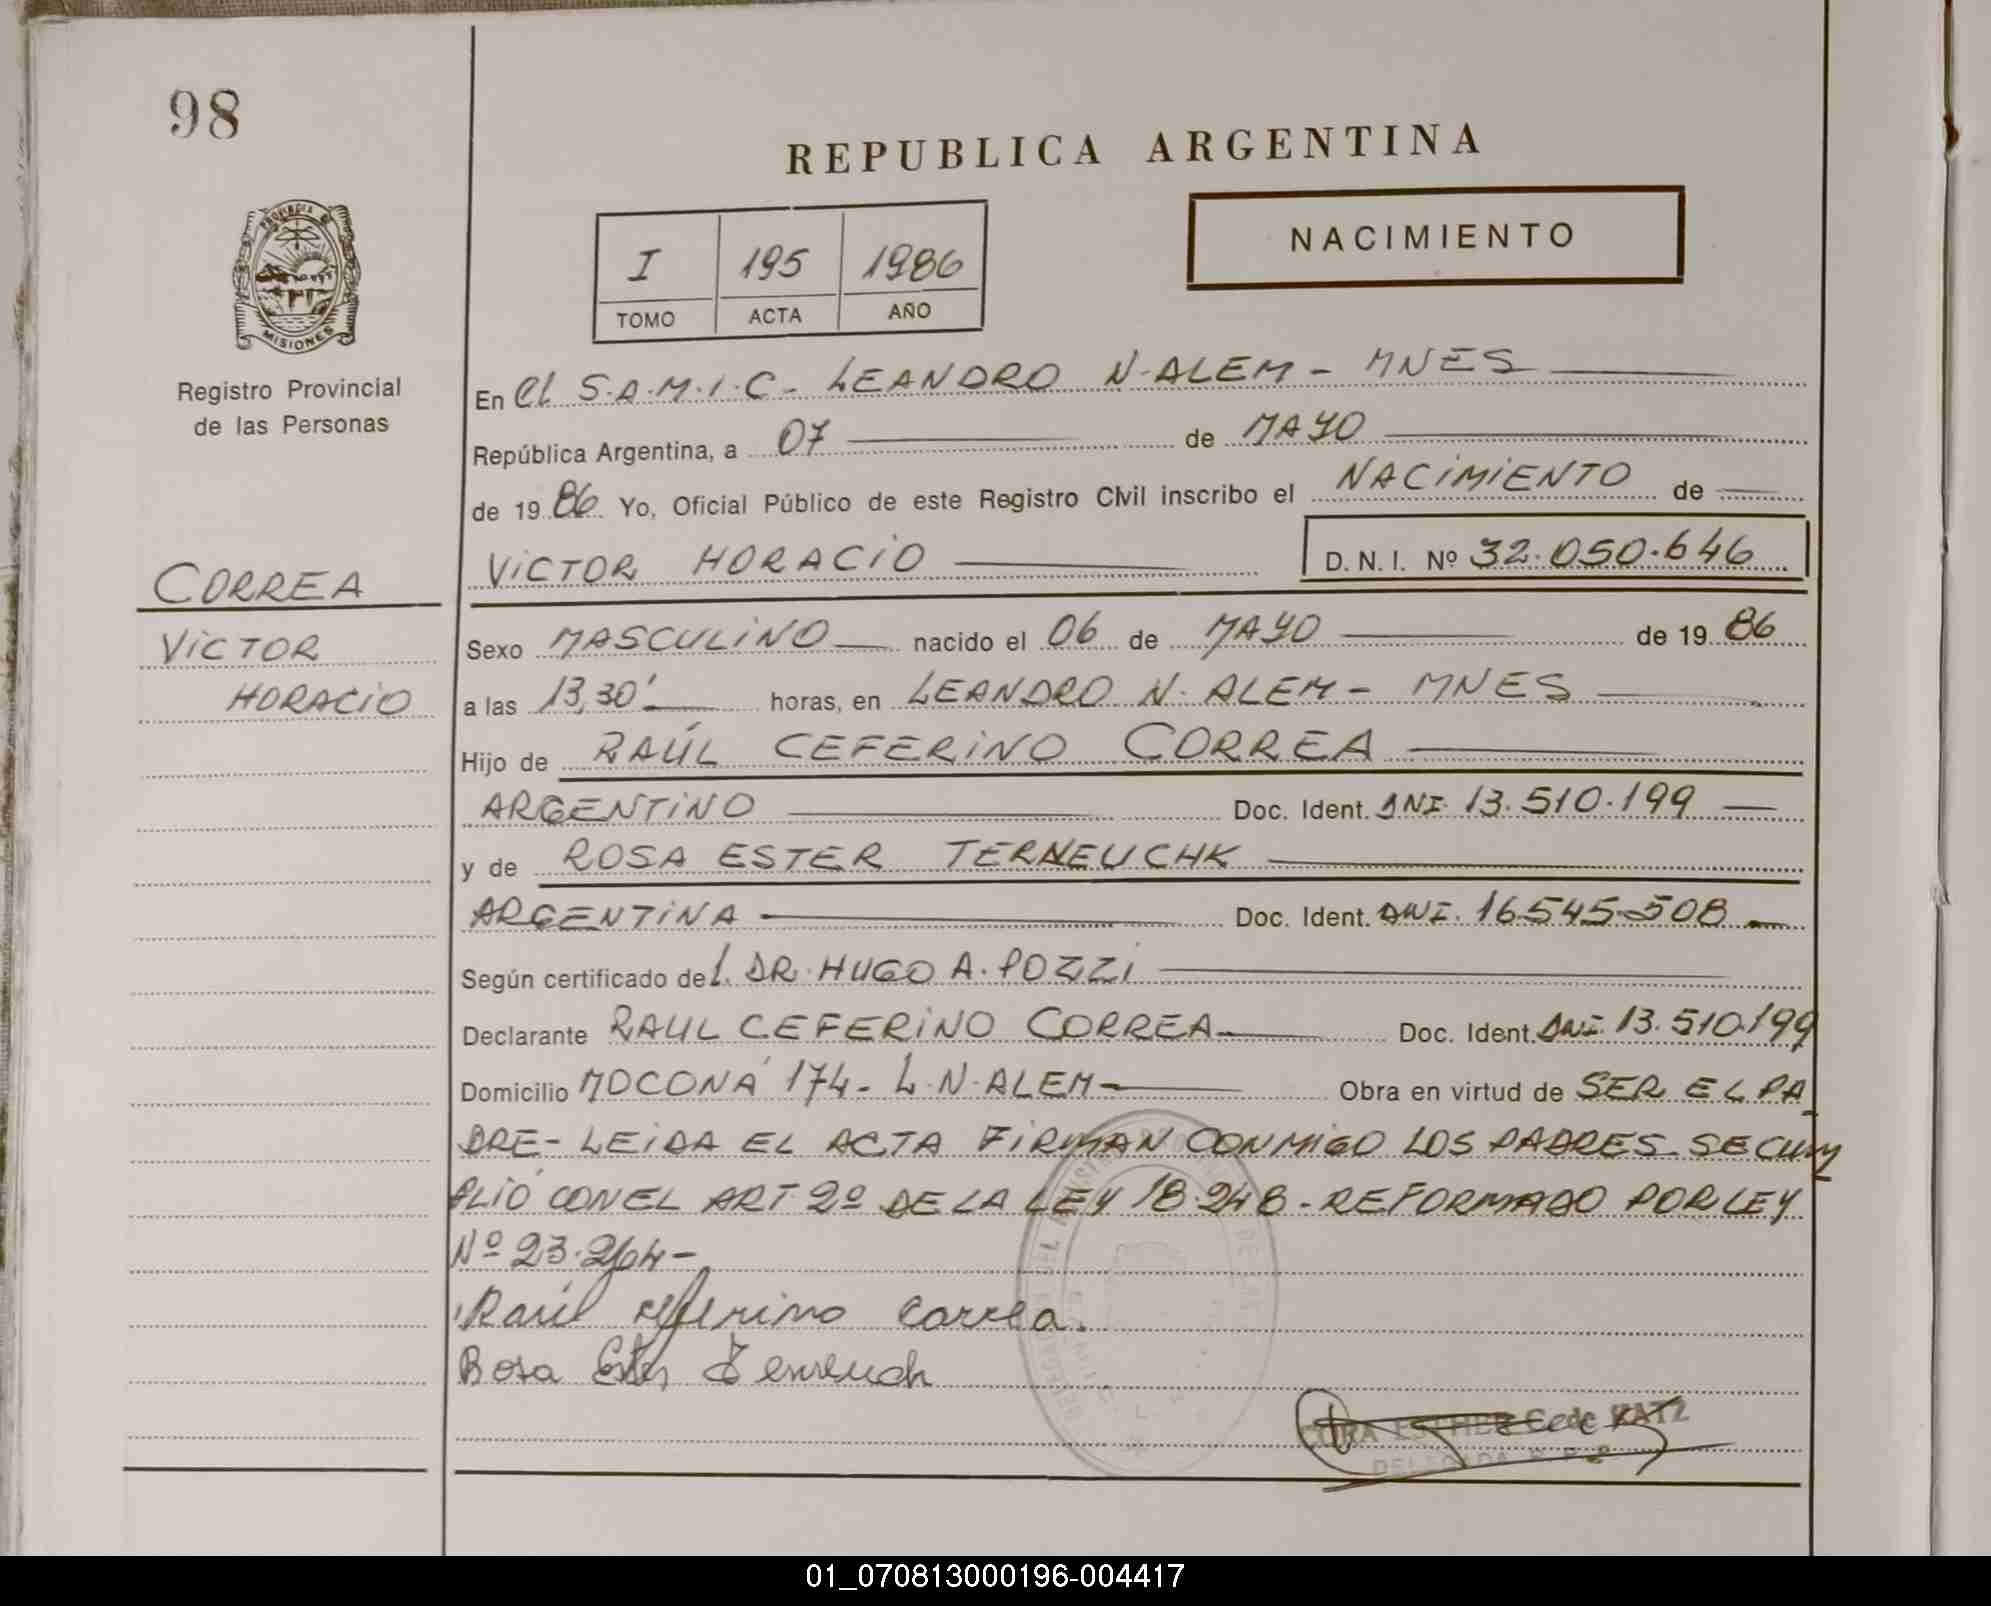 98
REPUBLICA ARGENTINA
NACIMIENTO
I 195 1986
TOMO ACTA AÑO
PROVINCIA DE
MISIONES
Registro Provincial
de las Personas
CORREA
VICTOR
HORACIO
En el S.A.M.I.C- LEANDRO N. ALEM - MNES
República Argentina, a 07 de MAYO
de 19 86 Yo, Oficial Público de este Registro Civil inscribo el NACIMIENTO de
VICTOR HORACIO D. N. I. Nº 32.050.646
Sexo MASCULINO nacido el 06 de MAYO de 19 86
a las 13,30' horas, en LEANDRO N. ALEM - MNES
Hijo de RAÚL CEFERINO CORREA
ARGENTINO Doc. Ident. DNI. 13.510.199
y de ROSA ESTER TERNEUCHK
ARGENTINA Doc. Ident. DNI. 16.545.508
Según certificado del. DR. HUGO A. POZZI
Declarante RAUL CEFERINO CORREA Doc. Ident. DNI. 13.510.199
Domicilio MOCONÁ 174- L.N. ALEM- Obra en virtud de SER EL PA
DRE- LEIDA EL ACTA FIRMAN CONMIGO LOS PADRES. SE CUM
PLIÓ CON EL ART 2º DE LA LEY 18.248 - REFORMADO POR LEY
Nº 23.264-
Raúl Ceferino Correa.
Rosa Ester Terneuch
ESTHER C de KATZ
DELEGADA R. P. P.
01_070813000196-004417